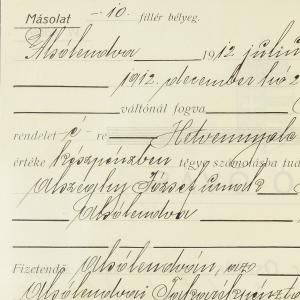 Másolat – 10. fillér bélyeg.
Alsólendva 1912 július
1912. december hó 2
váltónál fogva
rendelet é re Hetvennyolc
értéke készpénzben tegye számolásba tud
József úrnak
Alsólendva
Fizetendő Alsólendván, az
Alsólendvai Takarékpénztá